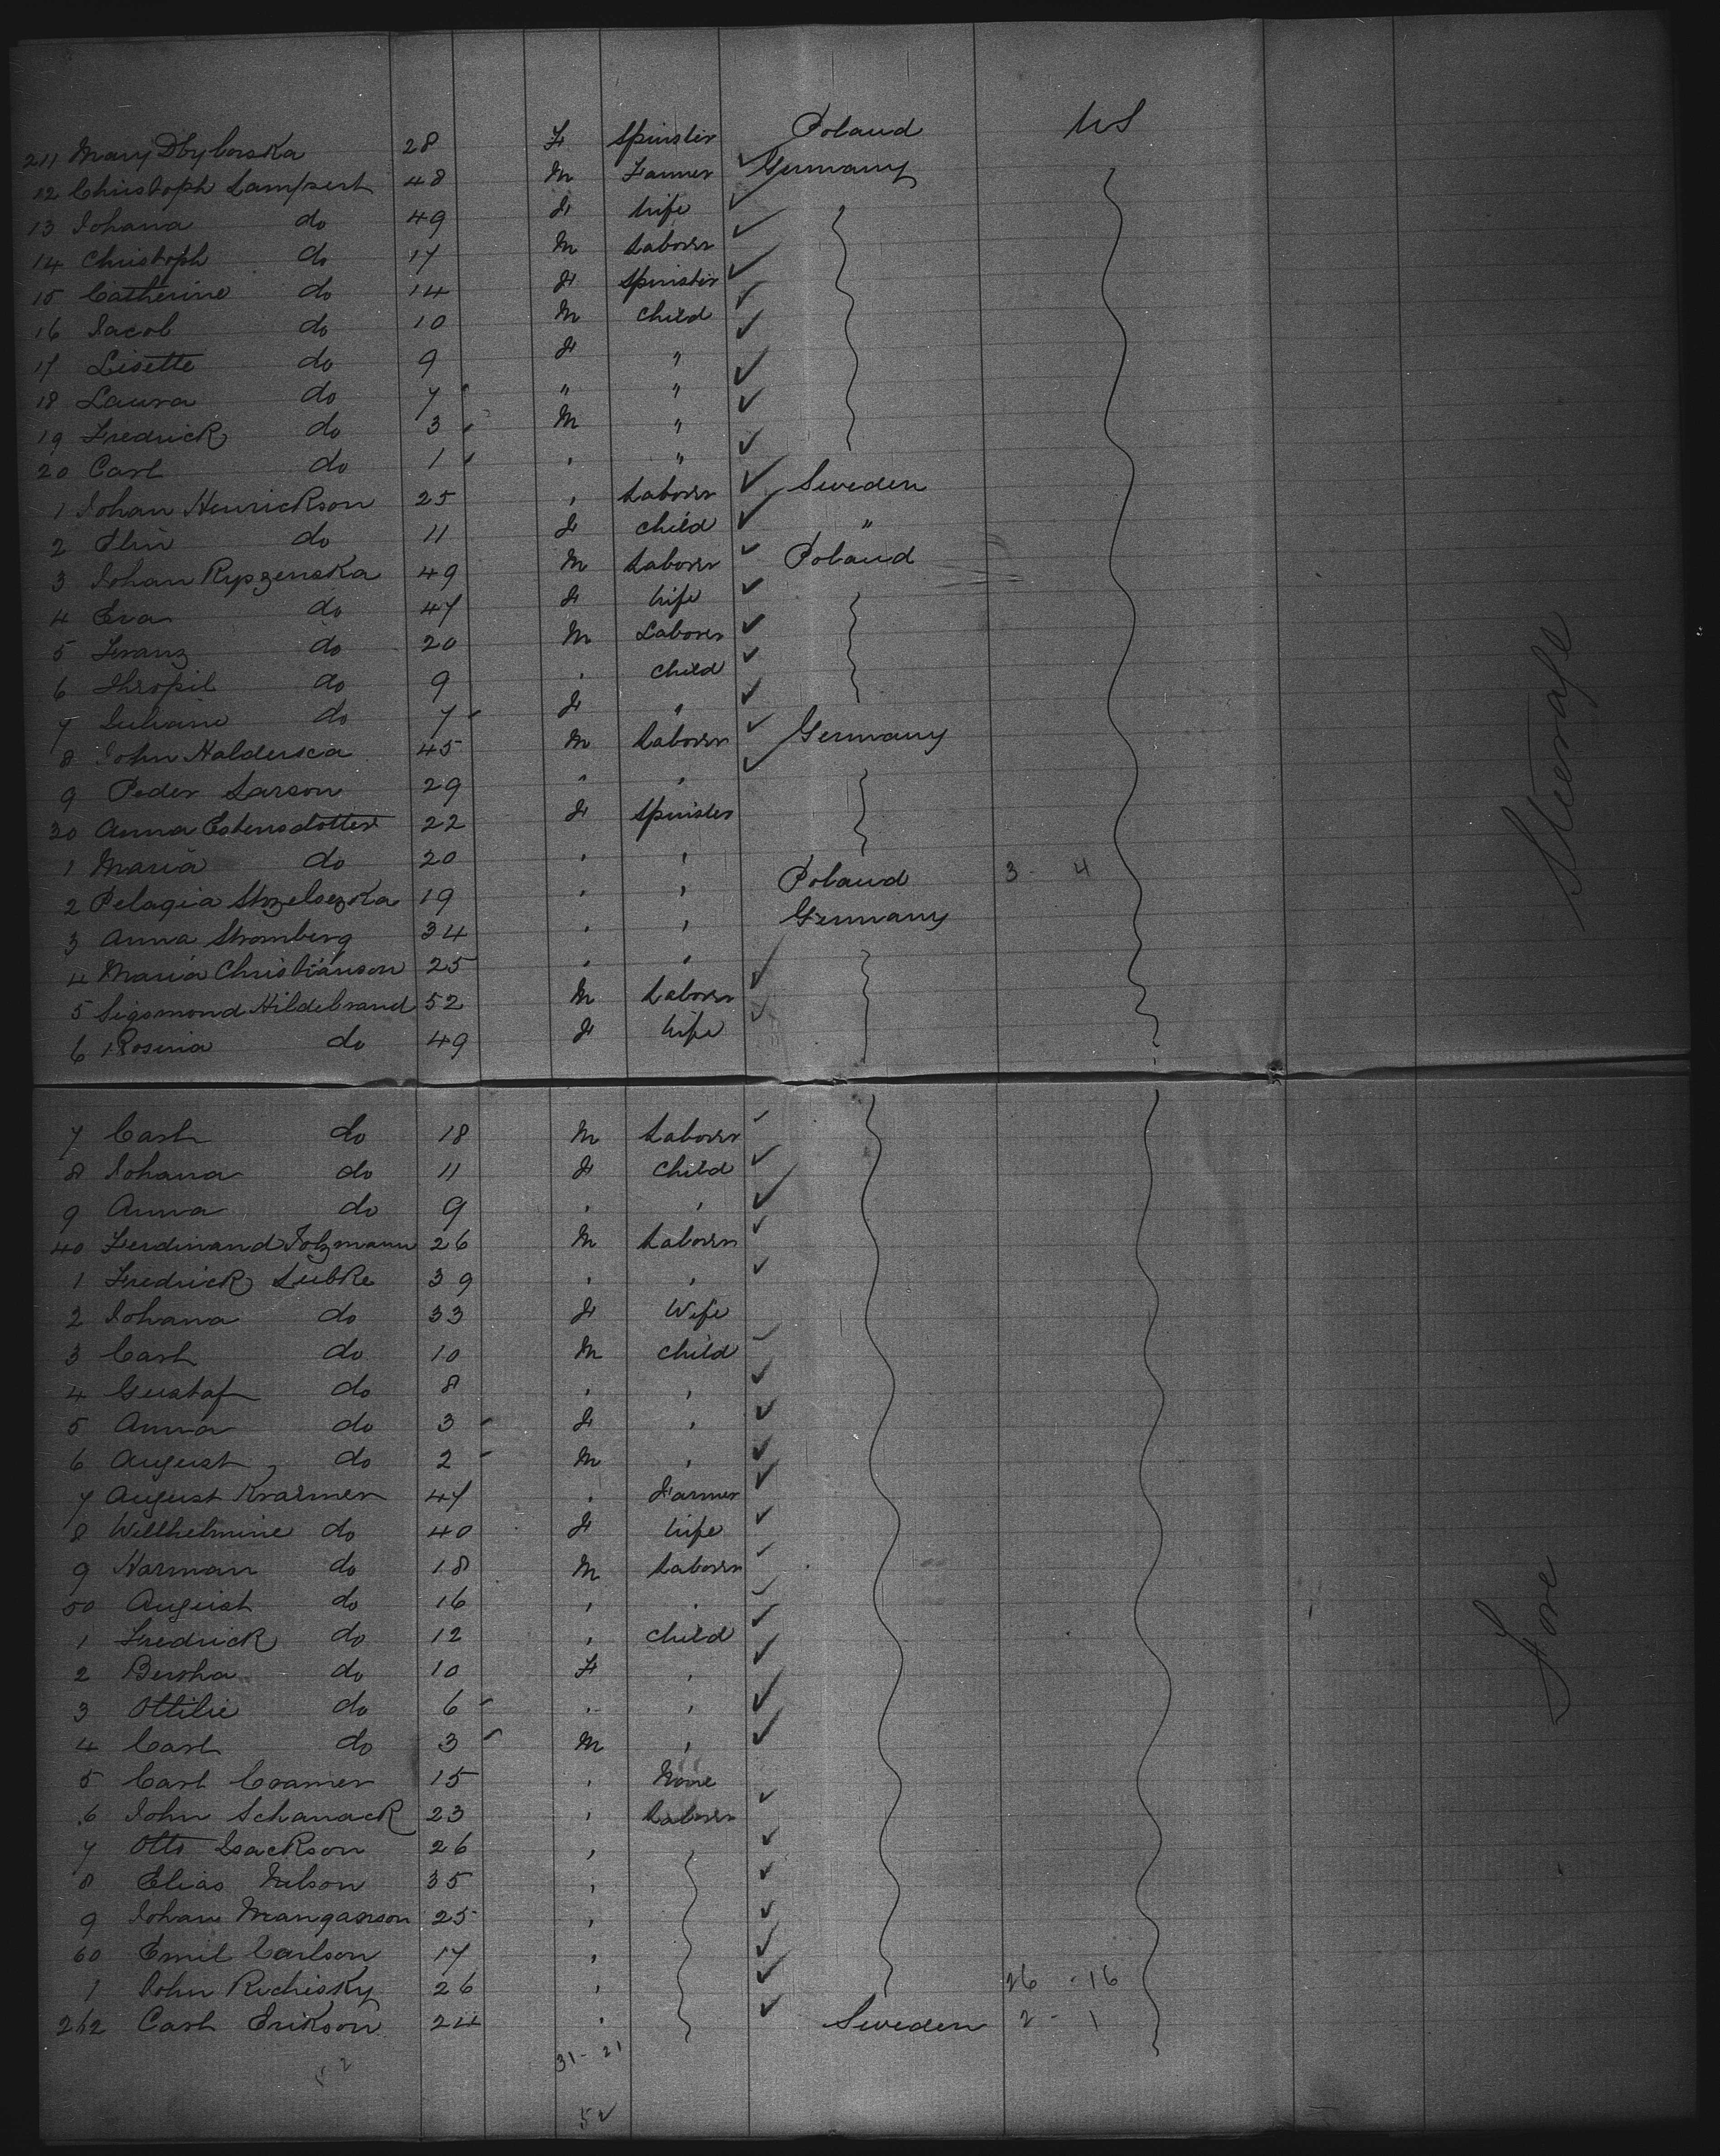 211 Mary Dbyborska 28 F Spinster Poland US
12 Christoph Lampert 48 M Farmer Germany
13 Johana do 49 F Wife
14 Christoph do 17 M Laborer
15 Catherine do 14 F Spinster
16 Jacob do 10 M Child
17 Lisette do 9 F "
18 Laura do 7 " "
19 Fredrick do 3 M "
20 Carl do 1 " "
1 Johan Henrickson 25 " Laborer Sweden
2 Elin do 11 F Child "
3 Johan Rypzenska 49 M Laborer Poland
4 Eva do 47 F Wife
5 Franz do 20 M Laborer
6 Thropil do 9 " Child
7 Juliane do 7 F "
8 John Haldersca 45 M Laborer Germany
9 Peder Larson 29 " "
30 Anna Estensdotter 22 F Spinster
1 Maria do 20 " "
2 Pelagia Strzelsezka 19 " " Poland 3 - 4
3 Anna Stromberg 34 " " Germany
4 Maria Christianson 25 " "
5 Sigomond Hildebrand 52 M Laborer
6 Rosina do 49 F Wife
7 Carl do 18 M Laborer
8 Johana do 11 F Child
9 Anna do 9 " "
40 Ferdinand Tolzmann 26 M Laborer
1 Fredrick Lubke 39 " "
2 Johana do 33 F Wife
3 Carl do 10 M Child
4 Gustaf do 8 " "
5 Anna do 3 F "
6 August do 2 M "
7 August Kraemer 47 " Farmer
8 Willhelmine do 40 F Wife
9 Harman do 18 M Laborer
50 August do 16 " "
1 Fredrick do 12 " Child
2 Bertha do 10 F "
3 Ottilie do 6 " "
4 Carl do 3 M "
5 Carl Cramer 15 " None
6 John Schanack 23 " Laborer
7 Otto Isackson 26 "
8 Elias Nelson 35 "
9 Johan Manganson 25 "
60 Emil Carlson 17 "
1 John Richisky 26 " 26 - 16
262 Carl Erikson 24 " Sweden 2 - 1
31 - 21
52
Steerage
Fore